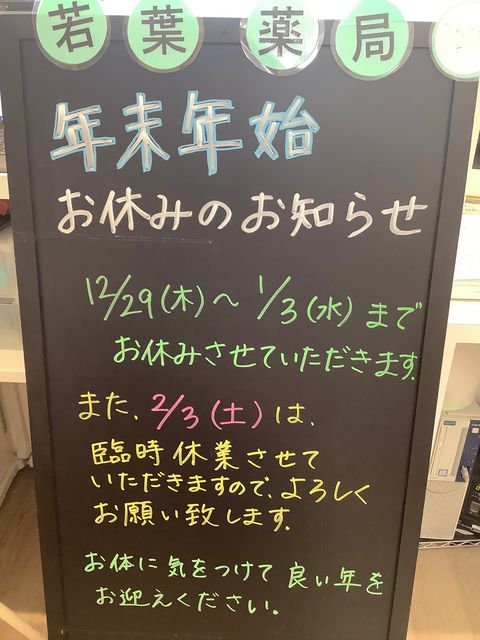 若葉薬局
年末年始
お休みのお知らせ
12/29(木)～1/3(水)まで
お休みさせていただきます。
また、2/3(土)は、
臨時休業させて
いただきますので、よろしく
お願い致します。
お体に気をつけて良い年を
お迎えください。